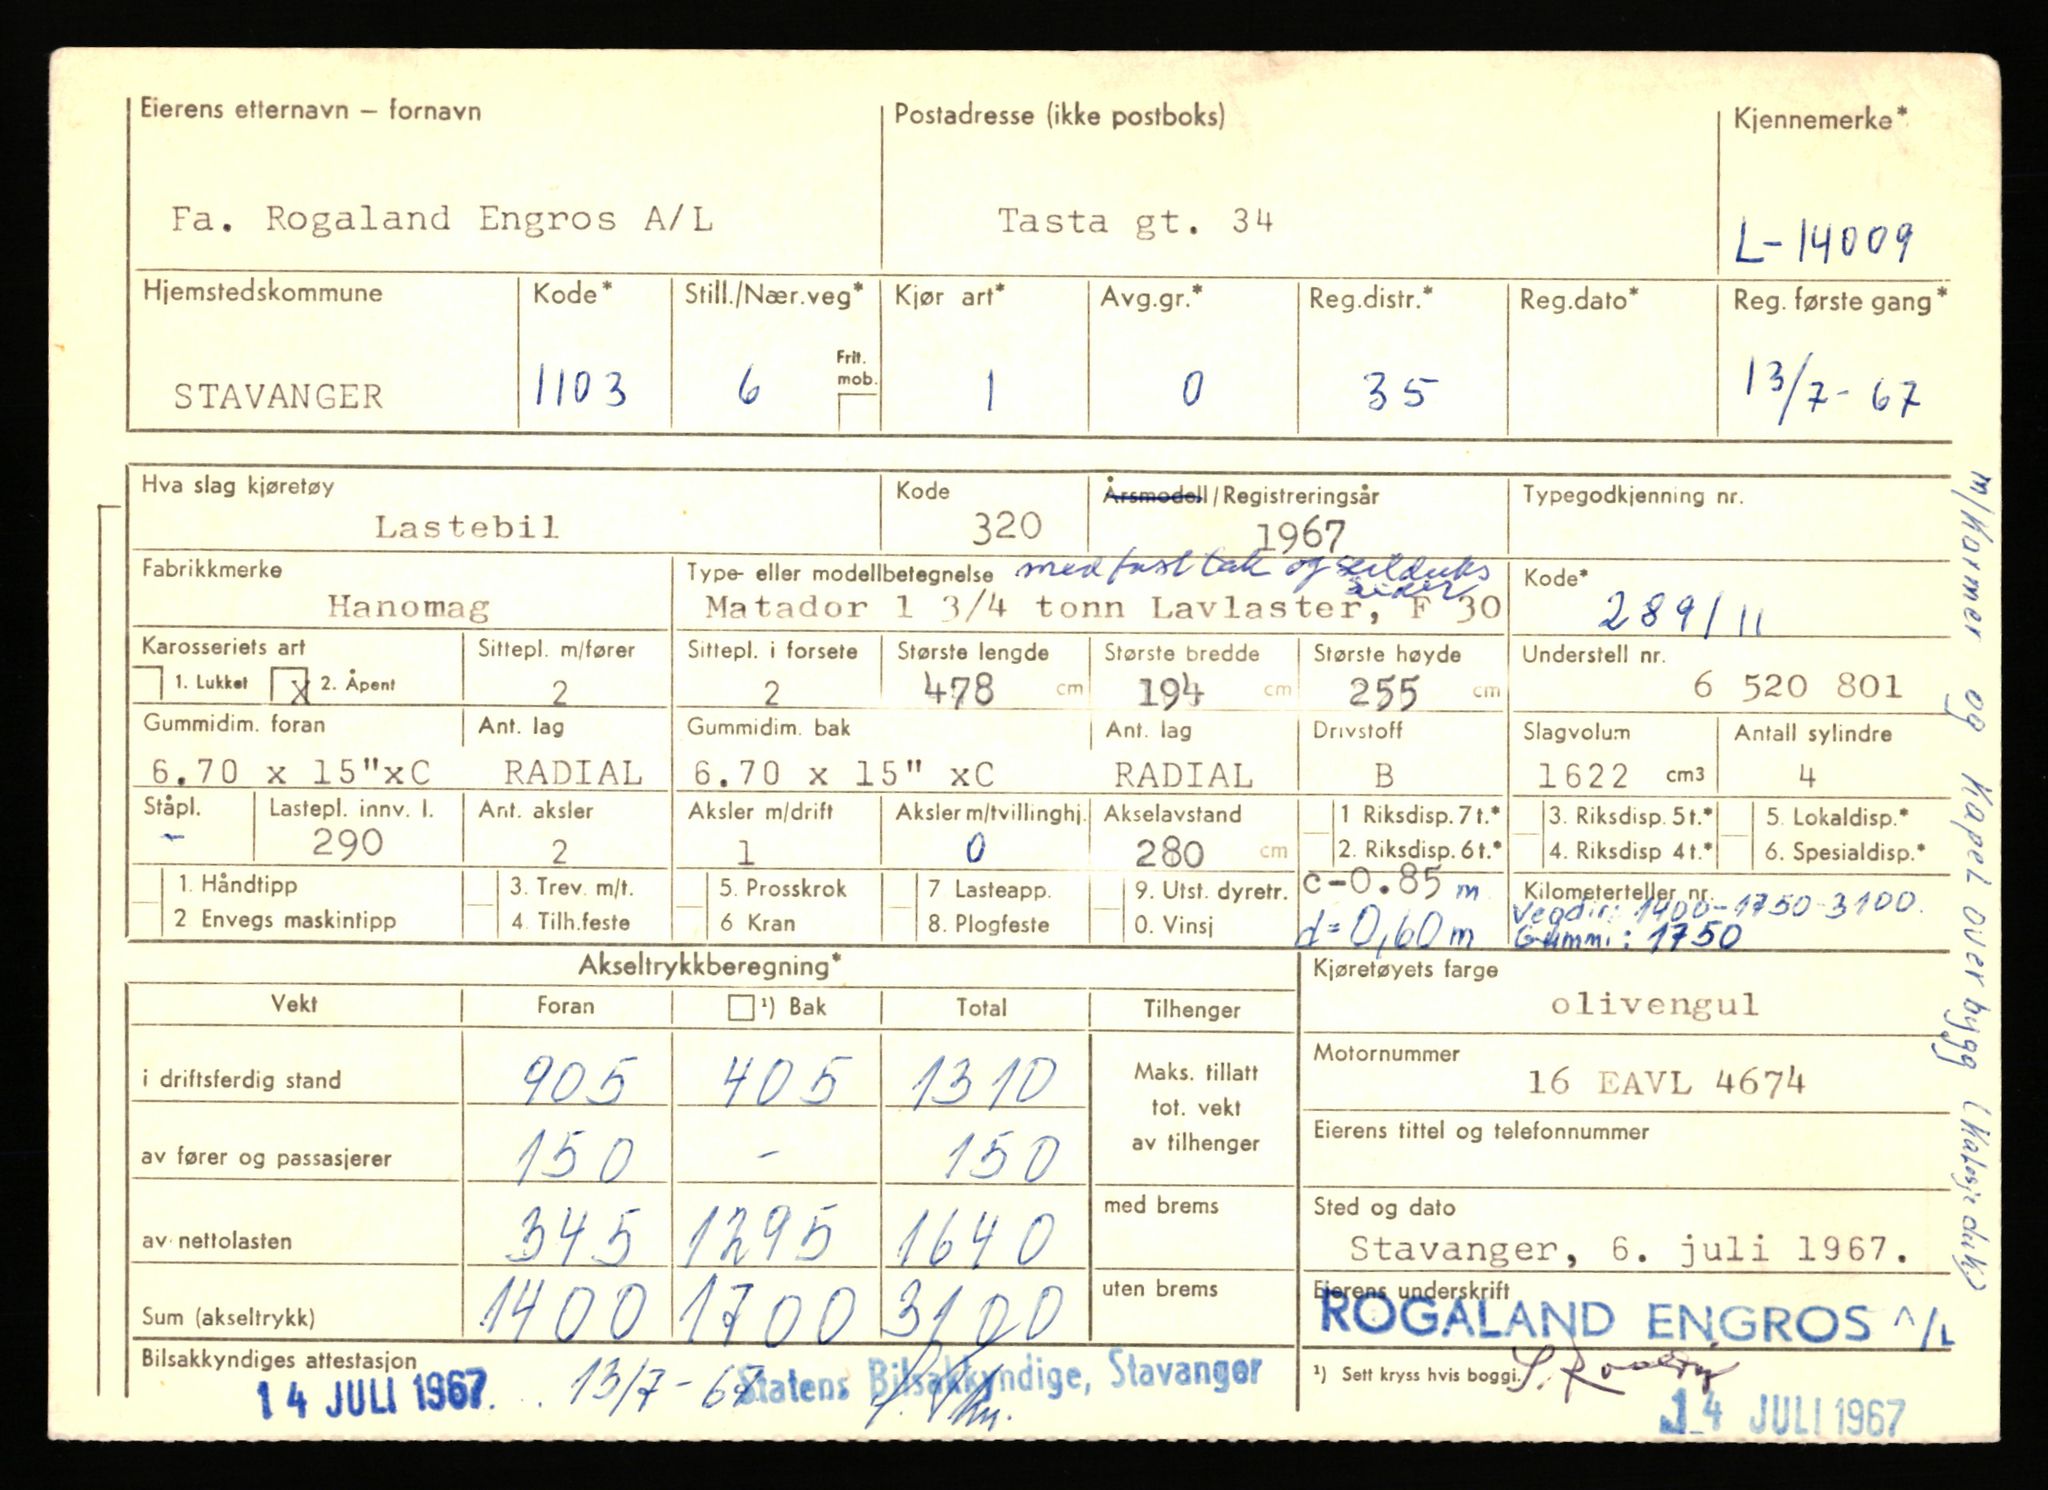 Eierens etternavn – fornavn
Postadresse (ikke postboks)
Kjennemerke*
Fa. Rogaland Engros A/L
Tasta gt. 34
L-14009
Hjemstedskommune
Kode*
Still./Nær.veg*
Kjør art*
Avg.gr.*
Reg.distr.*
Reg.dato*
Reg. første gang*
STAVANGER
1103
6
Frit. mob.
1
0
35
13/7-67
Hva slag kjøretøy
Kode
Årsmodell/Registreringsår
Typegodkjenning nr.
Lastebil
320
1967
Fabrikkmerke
Type- eller modellbetegnelse
med fast tak og seilduks
sider
Kode*
Hanomag
Matador 1 3/4 tonn Lavlaster, F 30
289/11
Karosseriets art
Sittepl. m/fører
Sittepl. i forsete
Største lengde
Største bredde
Største høyde
Understell nr.
1. Lukket
X 2. Åpent
2
2
478 cm
194 cm
255 cm
6 520 801
Gummidim. foran
Ant. lag
Gummidim. bak
Ant. lag
Drivstoff
Slagvolum
Antall sylindre
6.70 x 15"xC
RADIAL
6.70 x 15" xC
RADIAL
B
1622 cm3
4
Ståpl.
Lastepl. innv. l.
Ant. aksler
Aksler m/drift
Aksler m/tvillinghj.
Akselavstand
1 Riksdisp. 7t.*
3. Riksdisp. 5t.*
5. Lokaldisp.*
-
290
2
1
0
280 cm
2. Riksdisp. 6t.*
4. Riksdisp 4t.*
6. Spesialdisp.*
1. Håndtipp
3. Trev. m/t.
5. Prosskrok
7 Lasteapp.
9. Utst. dyretr.
c-0.85 m
Kilometerteller nr.
Vegdir: 1400-1750-3100.
2 Envegs maskintipp
4. Tilh.feste
6 Kran
8. Plogfeste
0. Vinsj
d=0,60 m
Gummi: 1750
Akseltrykkberegning*
Kjøretøyets farge
Vekt
Foran
¹) Bak
Total
Tilhenger
olivengul
i driftsferdig stand
905
405
1310
Maks. tillatt
tot. vekt
av tilhenger
Motornummer
16 EAVL 4674
av fører og passasjerer
150
-
150
Eierens tittel og telefonnummer
av nettolasten
345
1295
1640
med brems
Sted og dato
Stavanger, 6. juli 1967.
Sum (akseltrykk)
1400
1700
3100
uten brems
Eierens underskrift
ROGALAND ENGROS A/L
Bilsakkyndiges attestasjon
14 JULI 1967
13/7-67
Statens Bilsakkyndige, Stavanger
¹) Sett kryss hvis boggi.
14 JULI 1967
m/Karmer og Kapel overbygg